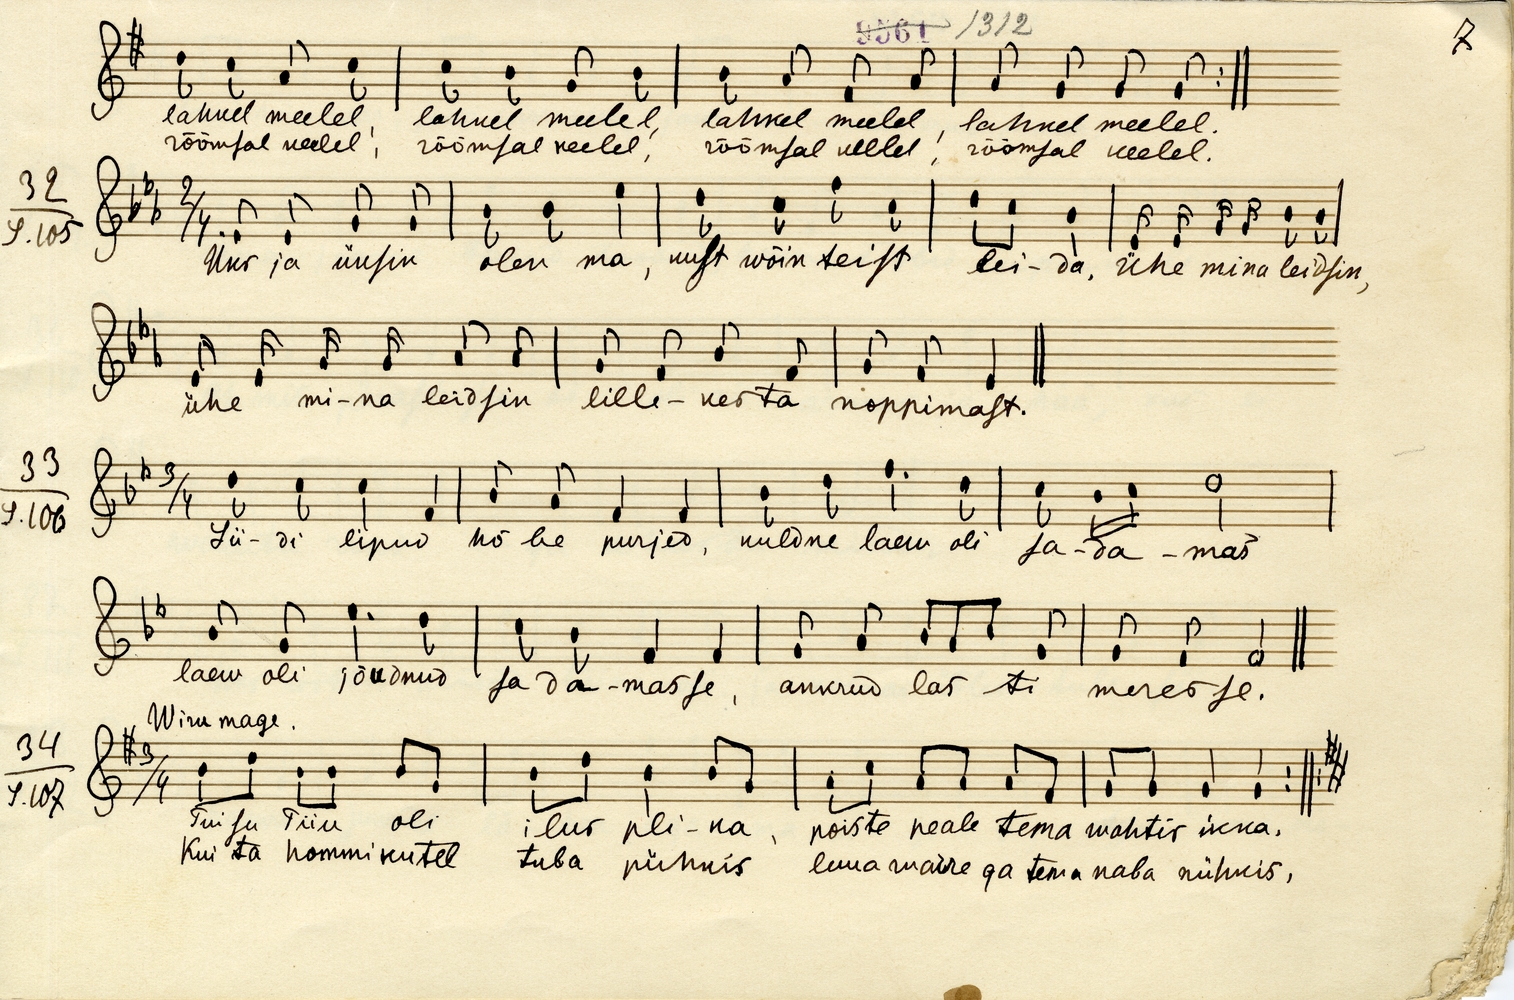 9561 1312
7
lahkel meelel, lahkel meelel, lahkel meelel, lahkel meelel.
rõõmsal keelel, rõõmsal keelel, rõõmsal keelel, rõõmsal keelel.
32
S.105
2/4
Üks ja üksin olen ma, kust wõin teist lei-da, Ühe mina leidsin,
ühe mi-na leidsin lille-kesta noppimast.
33
S.106
3/4
Sii-di lipud hõ be purjed, kuldne laew oli sa-da-mas
laew oli jõudnud sa da-masse, ankrud las ti meres se.
Wiru mage.
34
S.107
3/4
Tuisu Tiiu oli ilus pli-ka, poiste peale tema wahtis ikka.
Kui ta hommikutel tuba pühkis luua warre ga tema naba nühkis,